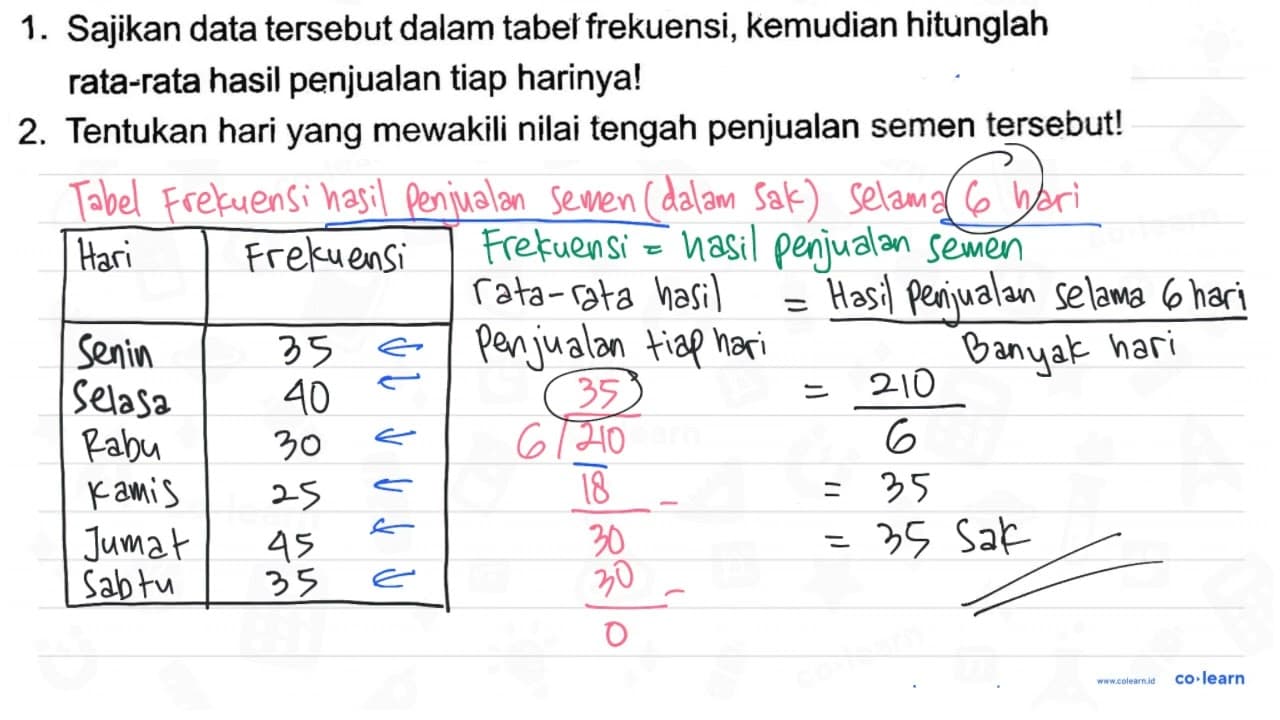 1. Sajikan data tersebut dalam tabel frekuensi, kemudian hitunglah
rata-rata hasil penjualan tiap harinya!
2. Tentukan hari yang mewakili nilai tengah penjualan semen tersebut!
Tabel Frekuensi hasil Penjualan semen (dalam Sak) selama 6 hari
Hari Frekuensi
Senin 35
Selasa 40
Rabu 30
Kamis 25
Jumat 45
Sabtu 35
Frekuensi = hasil penjualan semen
rata-rata hasil = Hasil Penjualan selama 6 hari
Penjualan tiap hari Banyak hari
= 210
6
= 35
= 35 Sak
35
6 210
18 -
30
30 -
0
www.colearn.id co·learn